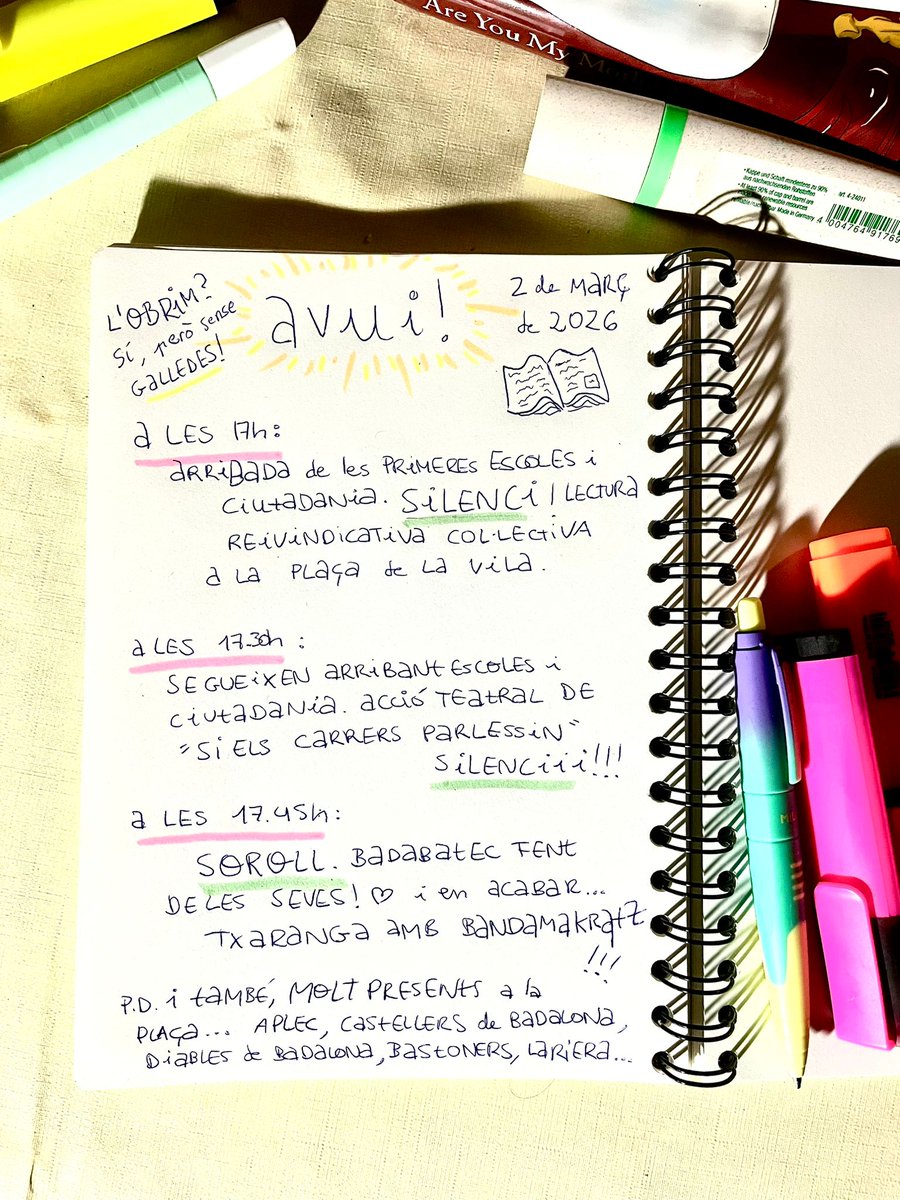 Are You My
• Kappe und Schaft mindestens zu 90%
aus nachwachsenden Rohstoffen
• At least 90% of cap and barrel are
Made in Germany
art. 4-24011
4 004764 91769
L'OBRIM?
SÍ, però sense
GALLEDES!
avui!
2 de MARÇ
de 2026
A LES 17h:
ARRIBADA de les PRIMERES ESCOLES i
CIUTADANIA. SILENCI / LECTURA
REIVINDICATIVA COL·LECTIVA
A LA PLAÇA de LA VILA.
A LES 17.30h:
SEGUEIXEN ARRIBANT ESCOLES i
CIUTADANIA. ACCIÓ TEATRAL DE
"SI ELS CARRERS PARLESSIN"
SILENCiii!!!
A LES 17.45h:
SOROLL. BADABATEC FENT
DE LES SEVES! ♡ i en ACABAR...
TXARANGA AMB BANDAMAKRATZ
!!!
P.D. i també, MOLT PRESENTS a la
PLAÇA... APLEC, CASTELLERS de BADALONA,
DIABLES de BADALONA, BASTONERS, LARIERA...